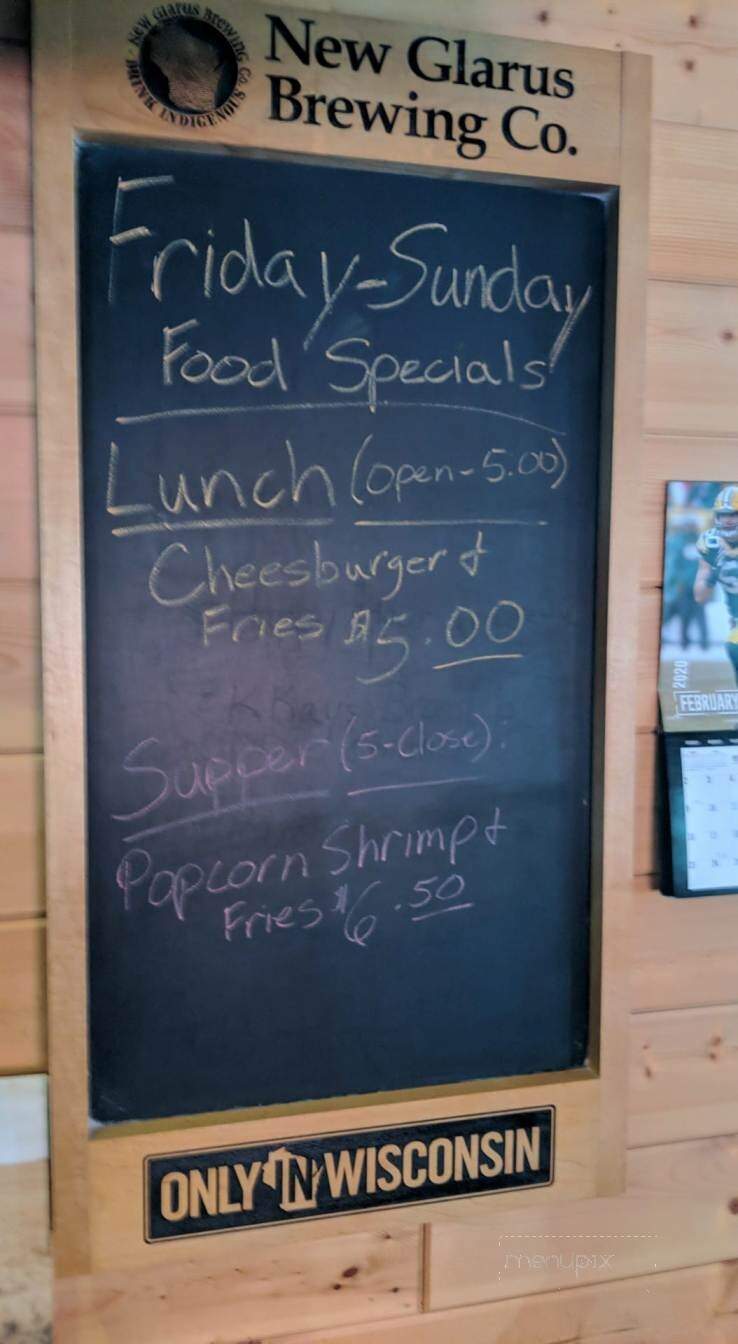 NEW GLARUS BREWING CO.
DRINK INDIGENOUS
New Glarus
Brewing Co.
Friday-Sunday
Food Specials
Lunch (open-5:00)
Cheesburger &
Fries $5.00
Supper (5-Close)
Popcorn Shrimp &
Fries $6.50
ONLY IN WISCONSIN
2020
FEBRUARY
menupix